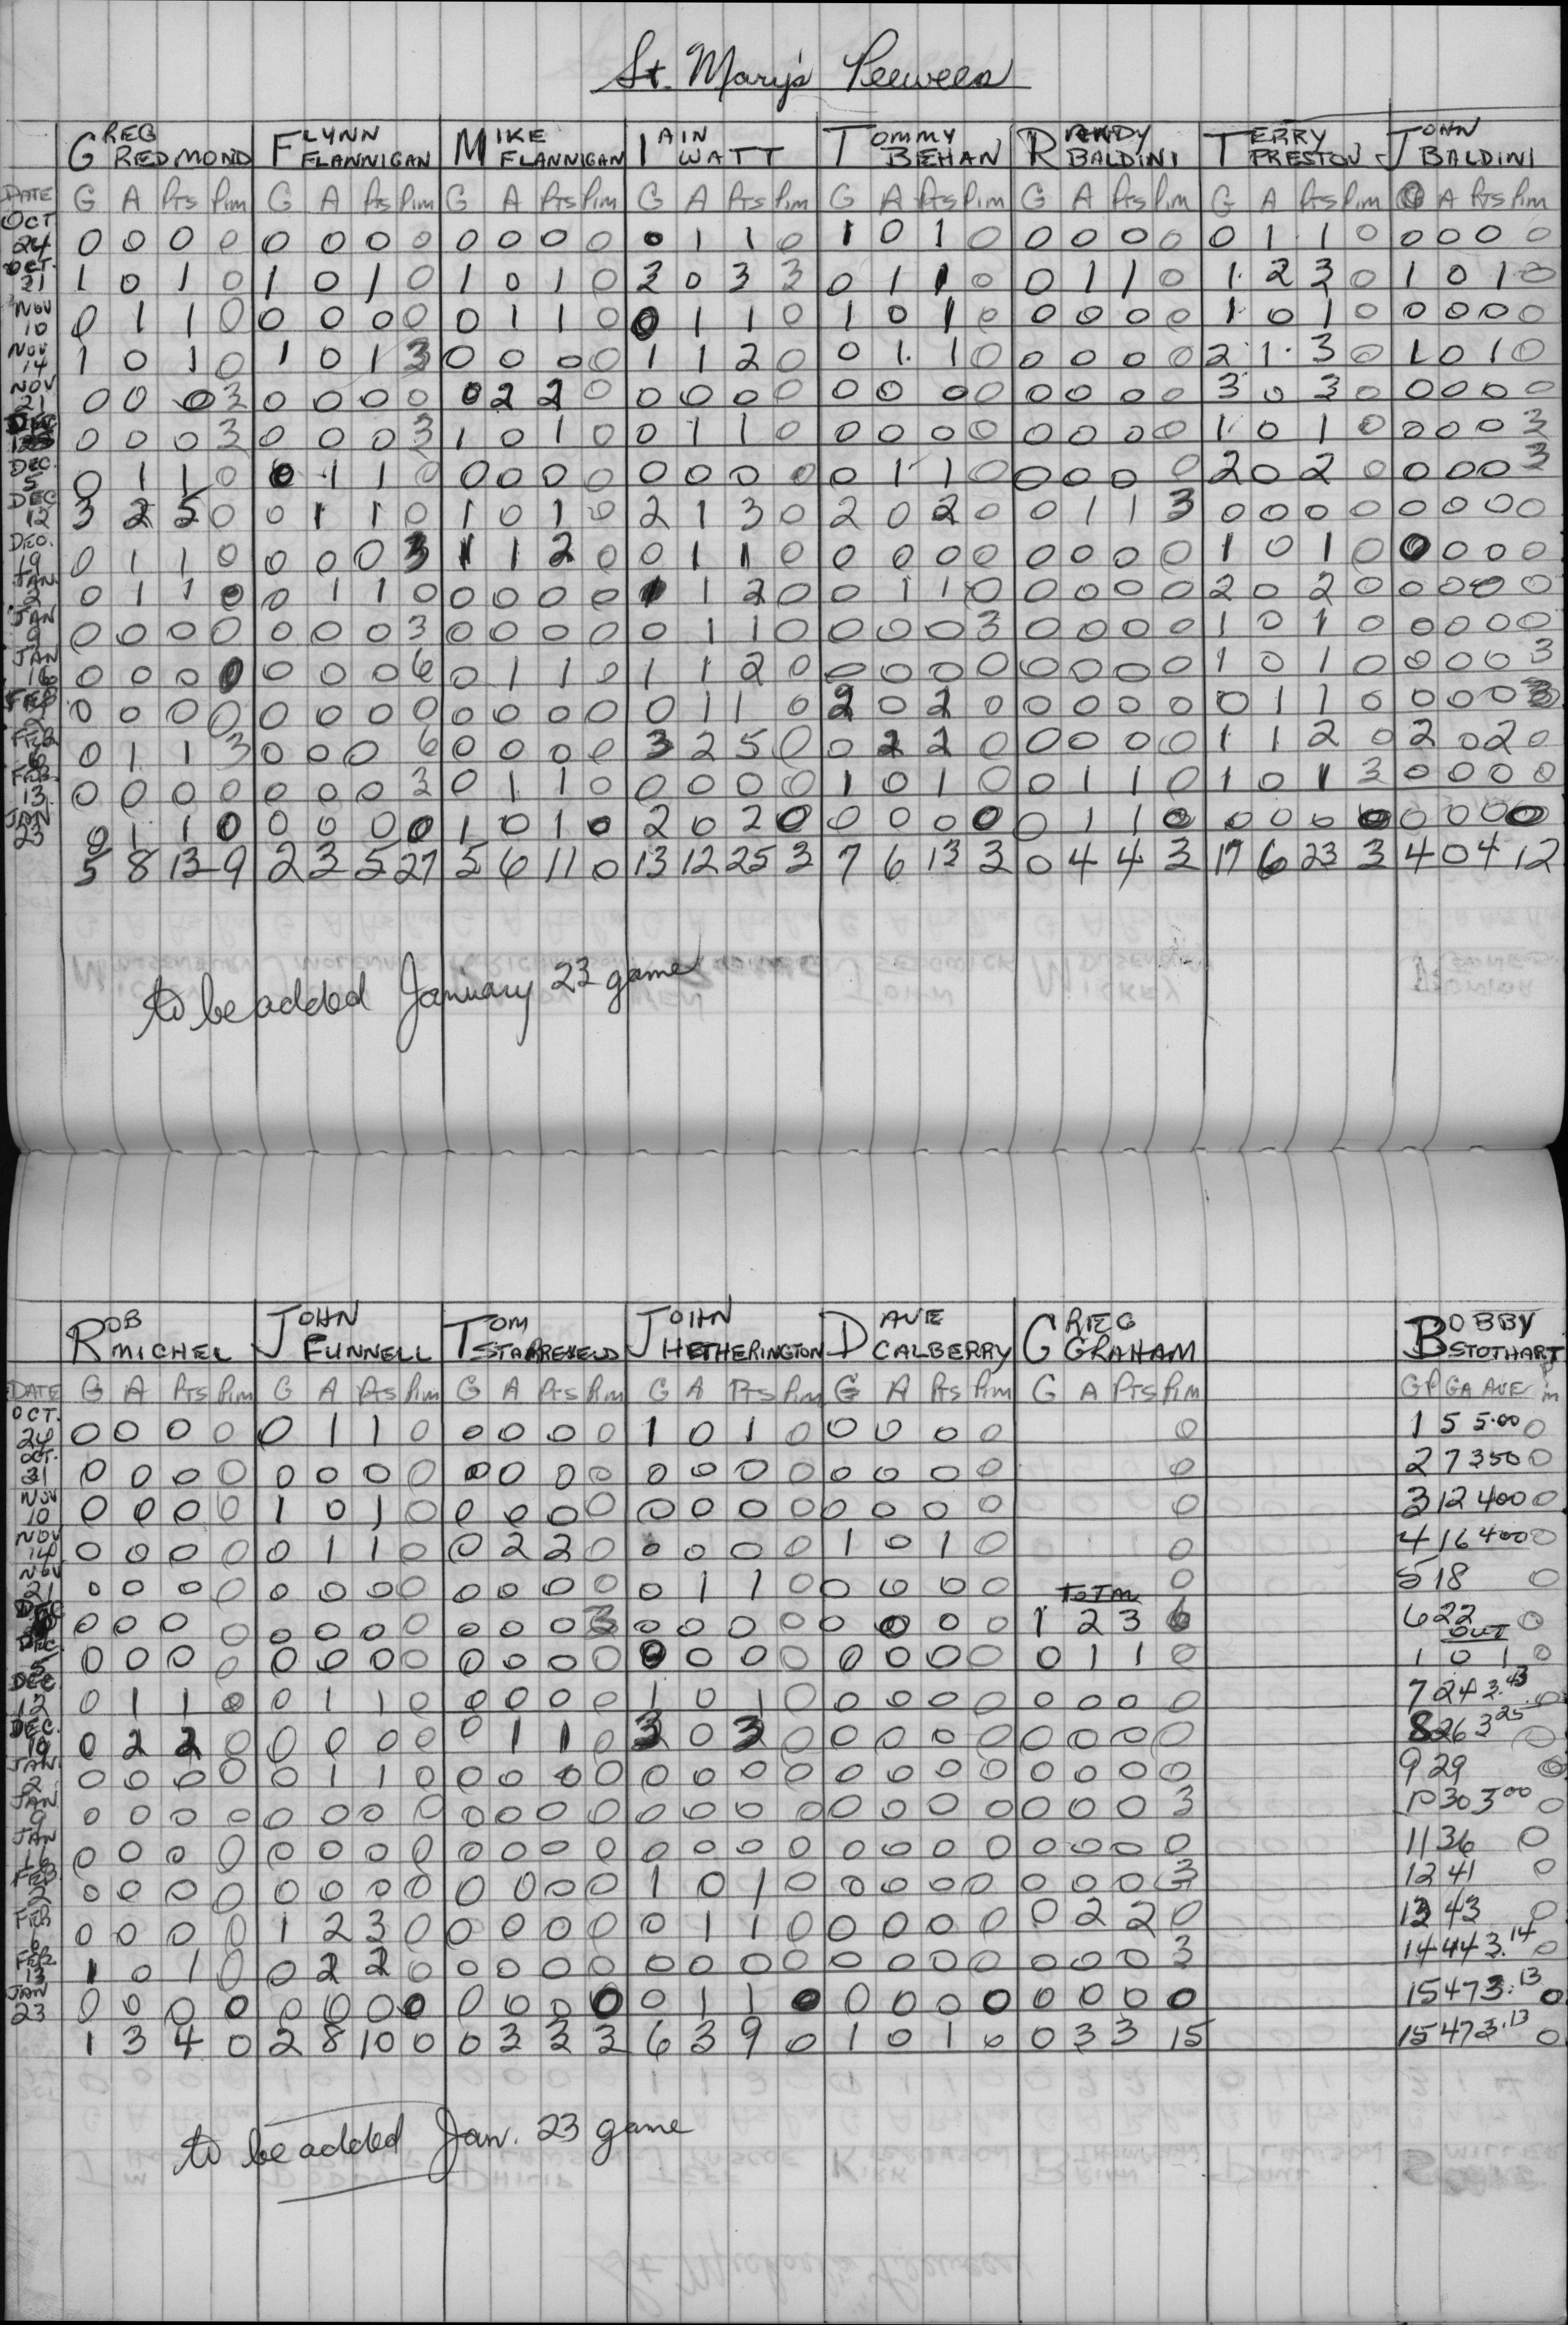 St. Mary's Peewees
GREG REDMOND FLYNN FLANNIGAN MIKE FLANNIGAN IAIN WATT TOMMY BEHAN RANDY BALDINI TERRY PRESTON JOHN BALDINI
DATE G A Pts Pim G A Pts Pim G A Pts Pim G A Pts Pim G A Pts Pim G A Pts Pim G A Pts Pim G A Pts Pim
OCT 24 0 0 0 0 0 0 0 0 0 0 0 0 0 1 1 0 1 0 1 0 0 0 0 0 0 1 1 0 0 0 0 0
OCT. 31 1 0 1 0 1 0 1 0 1 0 1 0 3 0 3 3 0 1 1 0 0 1 1 0 1 2 3 0 1 0 1 0
NOV 10 0 1 1 0 0 0 0 0 0 1 1 0 0 1 1 0 1 0 1 0 0 0 0 0 1 0 1 0 0 0 0 0
NOV 14 1 0 1 0 1 0 1 3 0 0 0 0 1 1 2 0 0 1 1 0 0 0 0 0 2 1 3 0 1 0 1 0
NOV 21 0 0 0 3 0 0 0 0 0 2 2 0 0 0 0 0 0 0 0 0 0 0 0 0 3 0 3 0 0 0 0 0
DEC 0 0 0 3 0 0 0 3 1 0 1 0 0 1 1 0 0 0 0 0 0 0 0 0 1 0 1 0 0 0 0 3
DEC. 5 0 1 1 0 0 1 1 0 0 0 0 0 0 0 0 0 0 1 1 0 0 0 0 0 2 0 2 0 0 0 0 3
DEC 12 3 2 5 0 0 1 1 0 1 0 1 0 2 1 3 0 2 0 2 0 0 1 1 3 0 0 0 0 0 0 0 0
DEC. 19 0 1 1 0 0 0 0 3 1 1 2 0 0 1 1 0 0 0 0 0 0 0 0 0 1 0 1 0 0 0 0 0
JAN. 2 0 1 1 0 0 1 1 0 0 0 0 0 1 1 2 0 0 1 1 0 0 0 0 0 2 0 2 0 0 0 0 0
JAN 9 0 0 0 0 0 0 0 3 0 0 0 0 0 1 1 0 0 0 0 3 0 0 0 0 1 0 1 0 0 0 0 0
JAN 16 0 0 0 0 0 0 0 6 0 1 1 0 1 1 2 0 0 0 0 0 0 0 0 0 1 0 1 0 0 0 0 3
FEB 2 0 0 0 0 0 0 0 0 0 0 0 0 0 1 1 0 2 0 2 0 0 0 0 0 0 1 1 0 0 0 0 3
FEB 6 0 1 1 3 0 0 0 6 0 0 0 0 3 2 5 0 0 2 2 0 0 0 0 0 1 1 2 0 2 0 2 0
FEB. 13 0 0 0 0 0 0 0 3 0 1 1 0 0 0 0 0 1 0 1 0 0 1 1 0 1 0 1 3 0 0 0 0
JAN 23 0 1 1 0 0 0 0 0 1 0 1 0 2 0 2 0 0 0 0 0 0 1 1 0 0 0 0 0 0 0 0 0
5 8 13 9 2 3 5 27 5 6 11 0 13 12 25 3 7 6 13 3 0 4 4 3 17 6 23 3 4 0 4 12
to be added January 23 game
ROB MICHEL JOHN FUNNELL TOM STARREVELD JOHN HETHERINGTON DAVE CALBERRY GREG GRAHAM BOBBY STOTHART
DATE G A Pts Pim G A Pts Pim G A Pts Pim G A Pts Pim G A Pts Pim G A Pts Pim GP GA AVE Pim
OCT. 24 0 0 0 0 0 1 1 0 0 0 0 0 1 0 1 0 0 0 0 0 0 1 5 5.00 0
OCT. 31 0 0 0 0 0 0 0 0 0 0 0 0 0 0 0 0 0 0 0 0 0 2 7 350 0
NOV 10 0 0 0 0 1 0 1 0 0 0 0 0 0 0 0 0 0 0 0 0 0 3 12 400 0
NOV 14 0 0 0 0 0 1 1 0 0 2 2 0 0 0 0 0 1 0 1 0 0 4 16 400 0
NOV 21 0 0 0 0 0 0 0 0 0 0 0 0 0 1 1 0 0 0 0 0 TOTAL 0 5 18 0
DEC 0 0 0 0 0 0 0 0 0 0 0 3 0 0 0 0 0 0 0 0 1 2 3 6 6 22 OUT 0
DEC. 5 0 0 0 0 0 0 0 0 0 0 0 0 0 0 0 0 0 0 0 0 0 1 1 0 1 0 1 0
DEC 12 0 1 1 0 0 1 1 0 0 0 0 0 1 0 1 0 0 0 0 0 0 0 0 0 7 24 3.43 0
DEC. 19 0 2 2 0 0 0 0 0 0 1 1 0 3 0 3 0 0 0 0 0 0 0 0 0 8 26 3 25 0
JAN. 2 0 0 0 0 0 1 1 0 0 0 0 0 0 0 0 0 0 0 0 0 0 0 0 0 9 29 0
JAN 9 0 0 0 0 0 0 0 0 0 0 0 0 0 0 0 0 0 0 0 0 0 0 0 3 10 30 3 00 0
JAN 16 0 0 0 0 0 0 0 0 0 0 0 0 0 0 0 0 0 0 0 0 0 0 0 0 11 36 0
FEB 2 0 0 0 0 0 0 0 0 0 0 0 0 1 0 1 0 0 0 0 0 0 0 0 3 12 41 0
FEB 6 0 0 0 0 1 2 3 0 0 0 0 0 0 1 1 0 0 0 0 0 0 2 2 0 13 43 0
FEB. 13 1 0 1 0 0 2 2 0 0 0 0 0 0 0 0 0 0 0 0 0 0 0 0 3 14 44 3.14 0
JAN 23 0 0 0 0 0 0 0 0 0 0 0 0 0 1 1 0 0 0 0 0 0 0 0 0 15 47 3.13 0
1 3 4 0 2 8 10 0 0 3 3 3 6 3 9 0 1 0 1 0 0 3 3 15 15 47 3.13 0
to be added Jan. 23 game